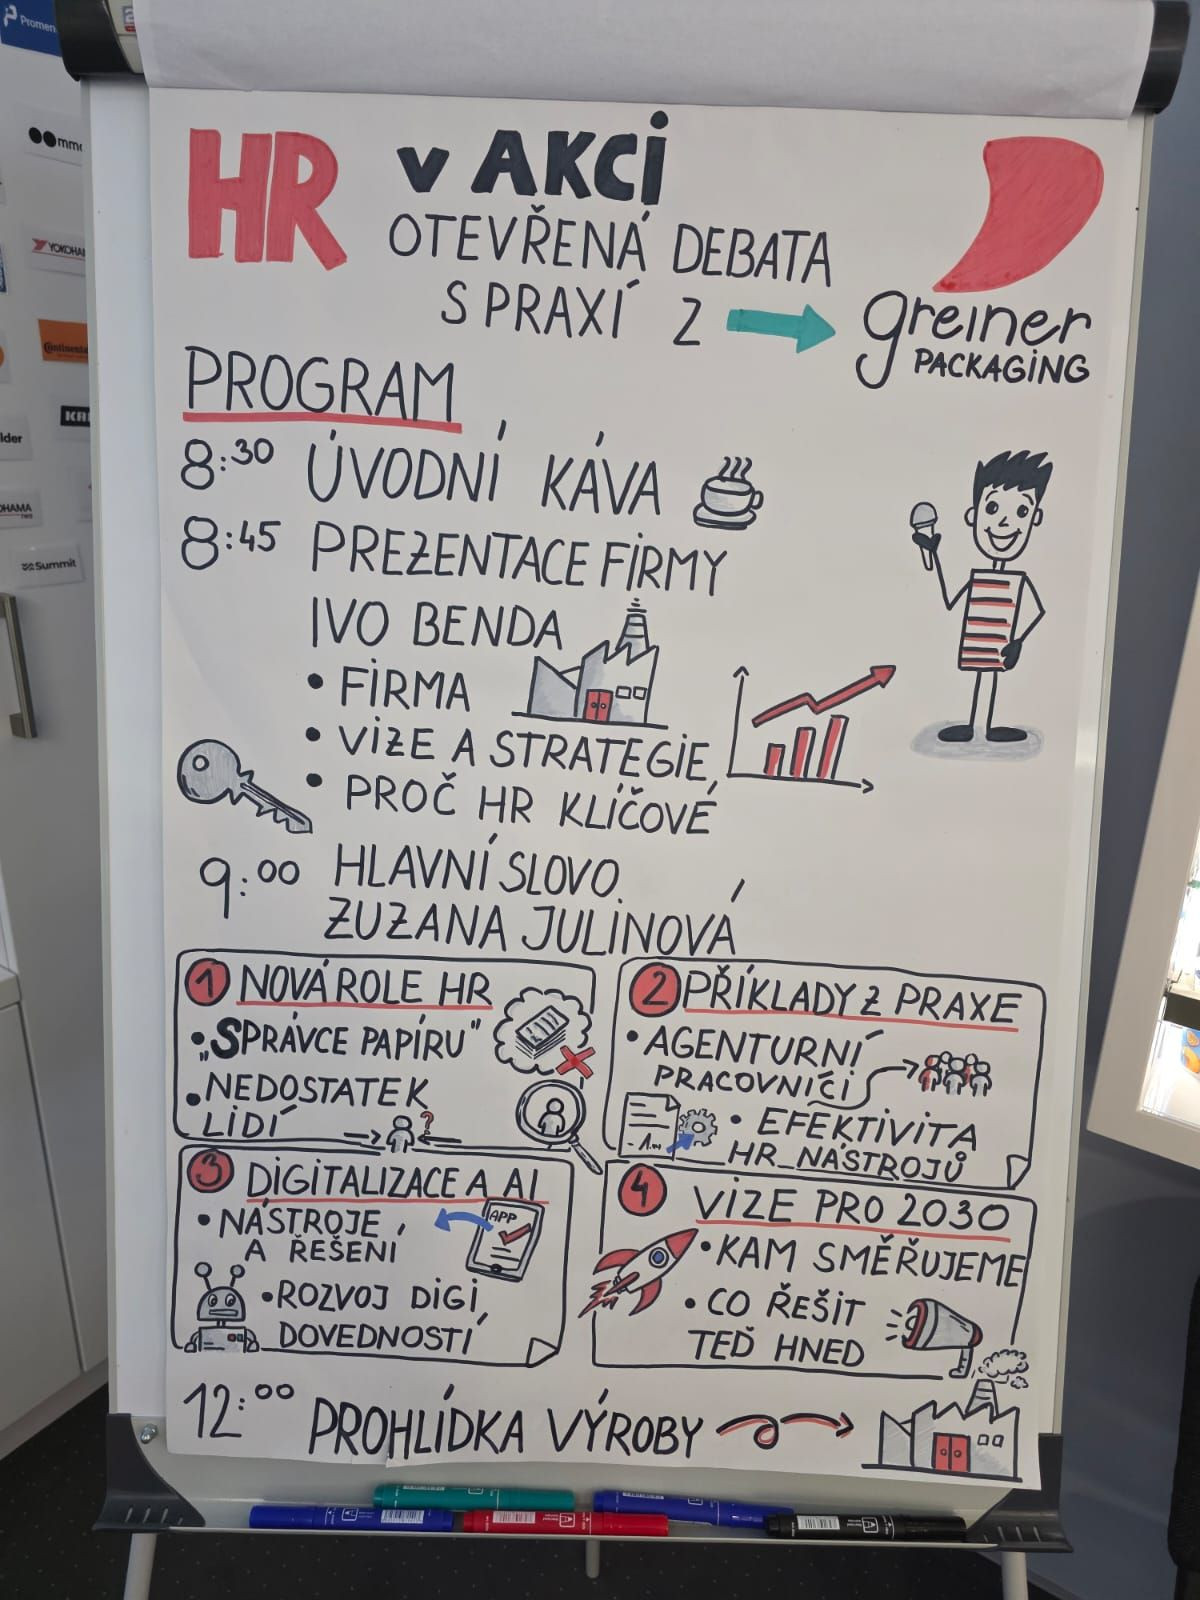 Promen
YOKOHA
Continental
KRA
lder
OHAMA
Summit
HR v AKCI
OTEVŘENÁ DEBATA
S PRAXÍ Z
greiner
PACKAGING
PROGRAM
8:30 ÚVODNÍ KÁVA
8:45 PREZENTACE FIRMY
IVO BENDA
• FIRMA
• VIZE A STRATEGIE
• PROČ HR KLÍČOVÉ
9:00 HLAVNÍ SLOVO
ZUZANA JULINOVÁ
1 NOVÁ ROLE HR
• „SPRÁVCE PAPÍRU"
• NEDOSTATEK
LIDÍ
?
2 PŘÍKLADY Z PRAXE
• AGENTURNÍ
PRACOVNÍCI
• EFEKTIVITA
HR NÁSTROJŮ
3 DIGITALIZACE A AI
• NÁSTROJE
A ŘEŠENÍ
APP
• ROZVOJ DIGI
DOVEDNOSTÍ
4 VIZE PRO 2030
• KAM SMĚŘUJEME
• CO ŘEŠIT
TEĎ HNED
12:00 PROHLÍDKA VÝROBY